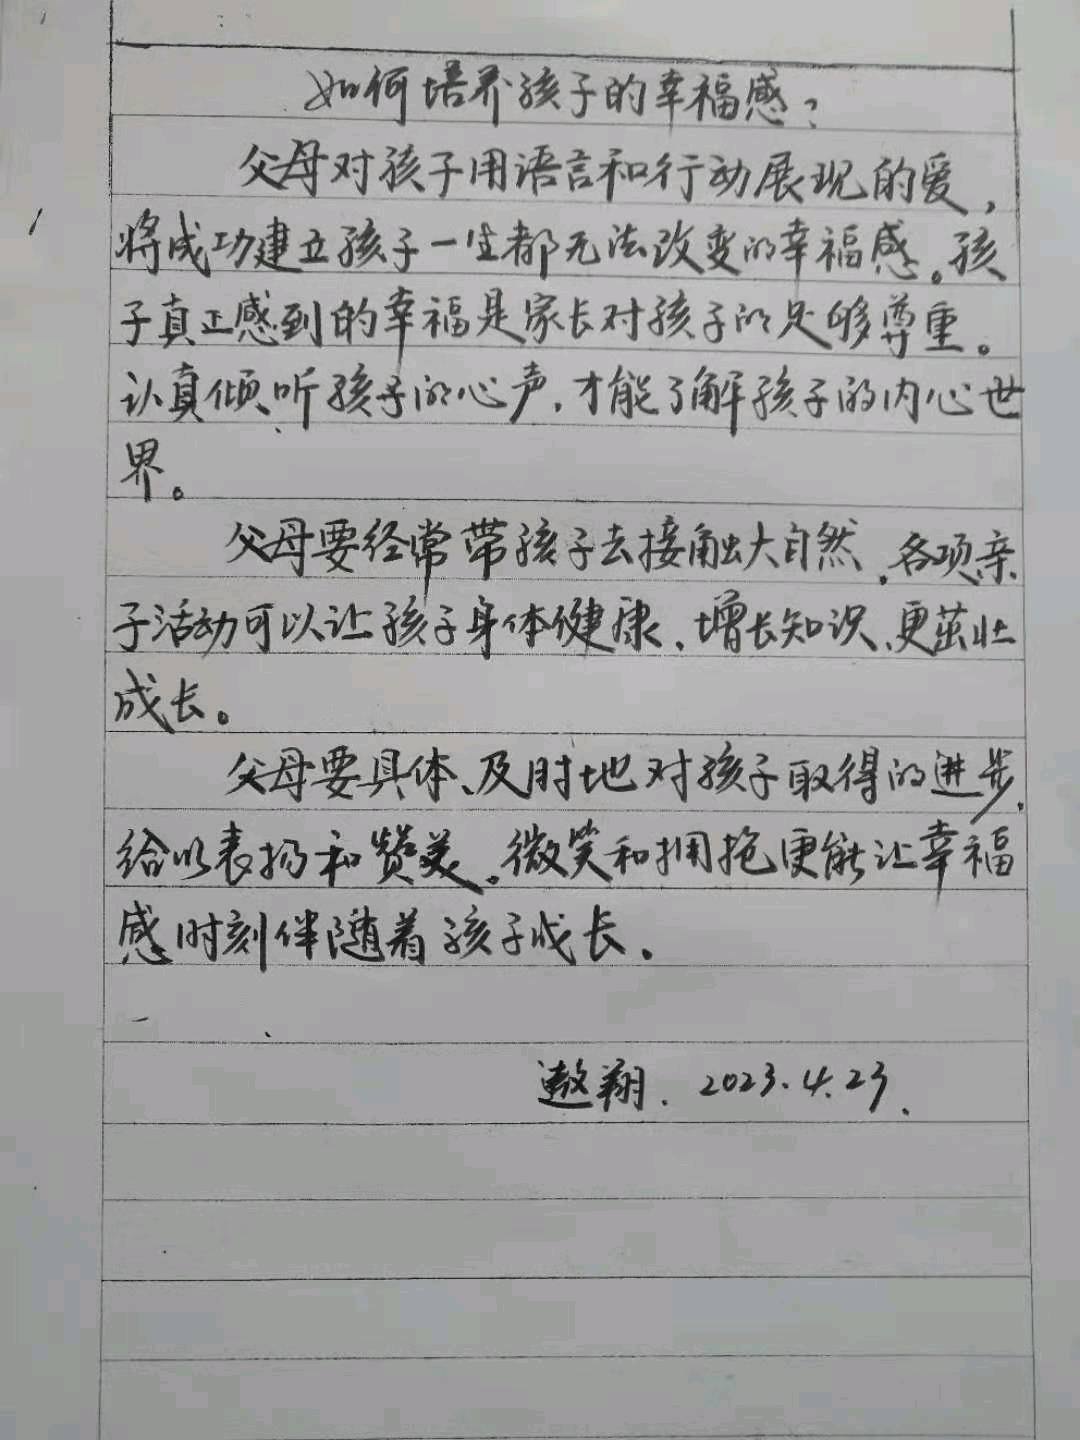 如何培养孩子的幸福感?
父母对孩子用语言和行动展现的爱,
将成功建立孩子一生都无法改变的幸福感。孩
子真正感到的幸福是家长对孩子的足够尊重。
认真倾听孩子的心声,才能了解孩子的内心世
界。
父母要经常带孩子去接触大自然,各项亲
子活动可以让孩子身体健康、增长知识、更茁壮
成长。
父母要具体、及时地对孩子取得的进步,
给以表扬和赞美。微笑和拥抱更能让幸福
感时刻伴随着孩子成长。
遨翔. 2023.4.23.